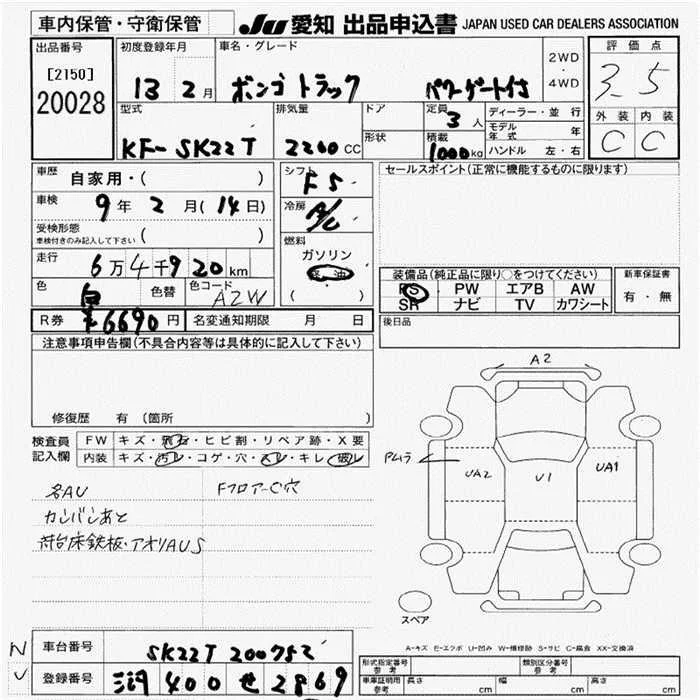 車内保管・守衛保管
JU 愛知 出品申込書 JAPAN USED CAR DEALERS ASSOCIATION
出品番号
[2150]
20028
初度登録年月
13 2月
車名・グレード
ボンゴ トラック パワーゲート付
2WD
・
4WD
評価点
3.5
外装 内装
C C
型式
KF-SK22T
排気量
2200CC
ドア
形状
定員
3人
積載
1000kg
ディーラー・並行
モデル年式 年
ハンドル 左・右
車歴
自家用・( )
車検
9年 2月(14日)
受検形態
車検付きのみ記入して下さい ( )
走行
6万4千920km
色
白
色替
色コード
A2W
R券 ¥6690円
名変通知期限 月 日
シフト
F5
冷房
A/C
燃料
ガソリン
軽油
( )
セールスポイント(正常に機能するものに限ります)
装備品(純正品に限り○をつけてください)
PS PW エアB AW
SR ナビ TV カワシート
新車保証書
有・無
後日品
注意事項申告欄(不具合内容等は具体的に記入して下さい)
修復歴 有 (箇所 )
検査員記入欄
FW キズ・飛石・ヒビ割・リペア跡・X要
内装 キズ・汚レ・コゲ・穴・スレ・キレ・破レ
各AU
Fフロアーc穴
カンバンあと
荷台床鉄板・アオリAUS
A2
UA2
U1
UA1
スペア
A-キズ E-エクボ U-凹み W-補修跡 S-サビ C-腐食 XX-交換済
N
U
車台番号 SK22T 200752
登録番号 三河 400 せ 2869
形式指定番号
参考
類別区分番号
参考
車庫証明用
参考
長さ cm 幅 cm 高さ cm